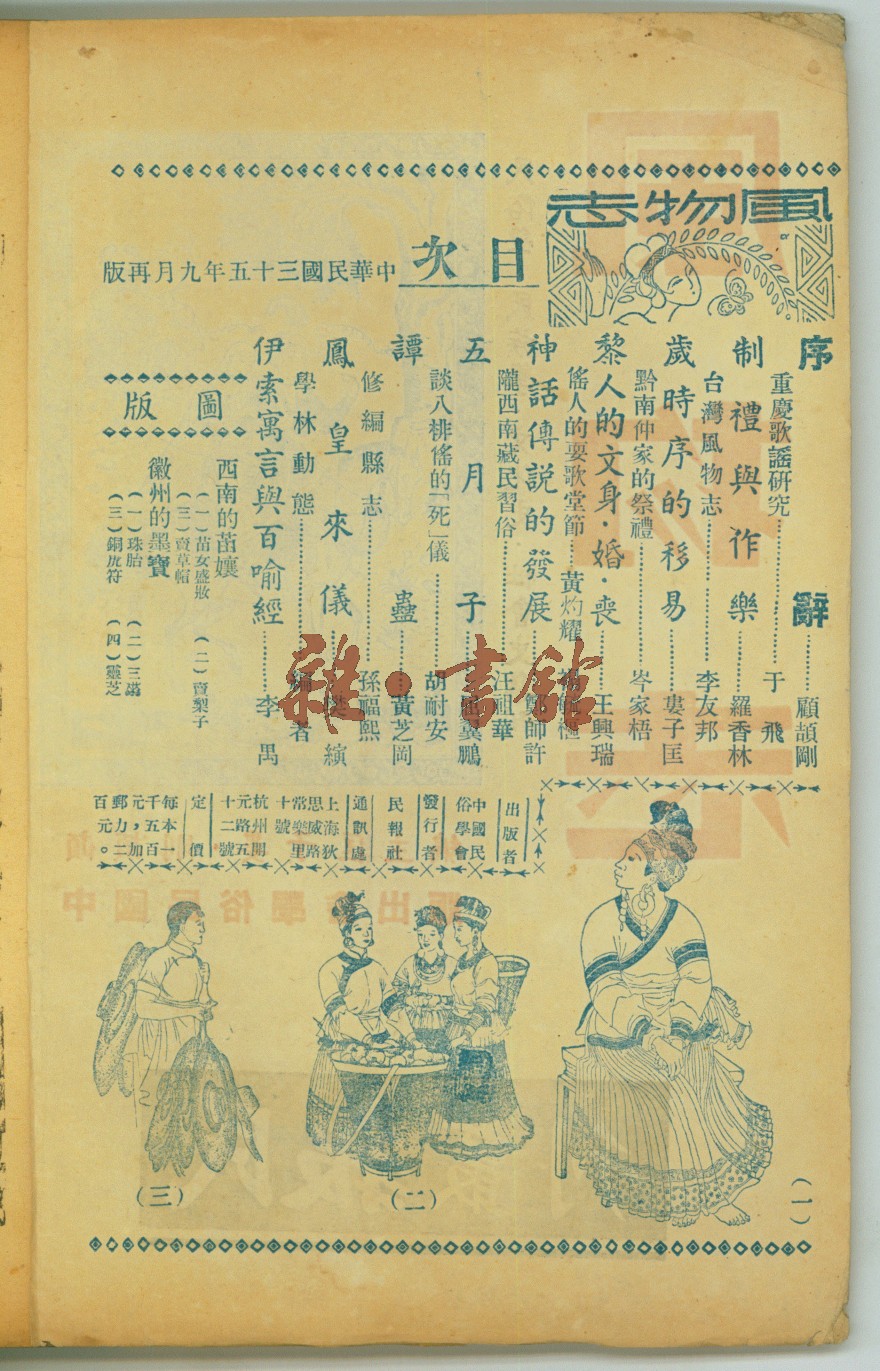 風物志
目次
中華民國三十五年九月再版
序辭……顧頡剛
重慶歌謠研究……于飛
制禮與作樂……羅香林
台灣風物志……李友邦
歲時序的移易……婁子匡
黔南仲家的祭禮……岑家梧
黎人的文身·婚·喪……王興瑞
傜人的耍歌堂節……黃灼耀
神話傳說的發展……鄭師許
隴西南藏民習俗……汪祖華
五月子……翼鵬
談八排傜的「死」儀……胡耐安
譚蠱……黃芝岡
修編縣志……孫福熙
鳳皇來儀……樊縯
學林動態……編者
伊索寓言與百喻經……李禺
圖版
西南的苗孃
(一)苗女盛妝 (二)賣梨子
(三)賣草帽
徽州的墨寶
(一)珠胎 (二)三
(三)銅虎符 (四)靈芝
出版者
中國民俗學會
發行者
民報社
通訊處
上海狄思威路常樂里十號
杭州開元路五十二號
定價
每本一千五百元,加郵力二百元。
(一)
(二)
(三)
雜·書館